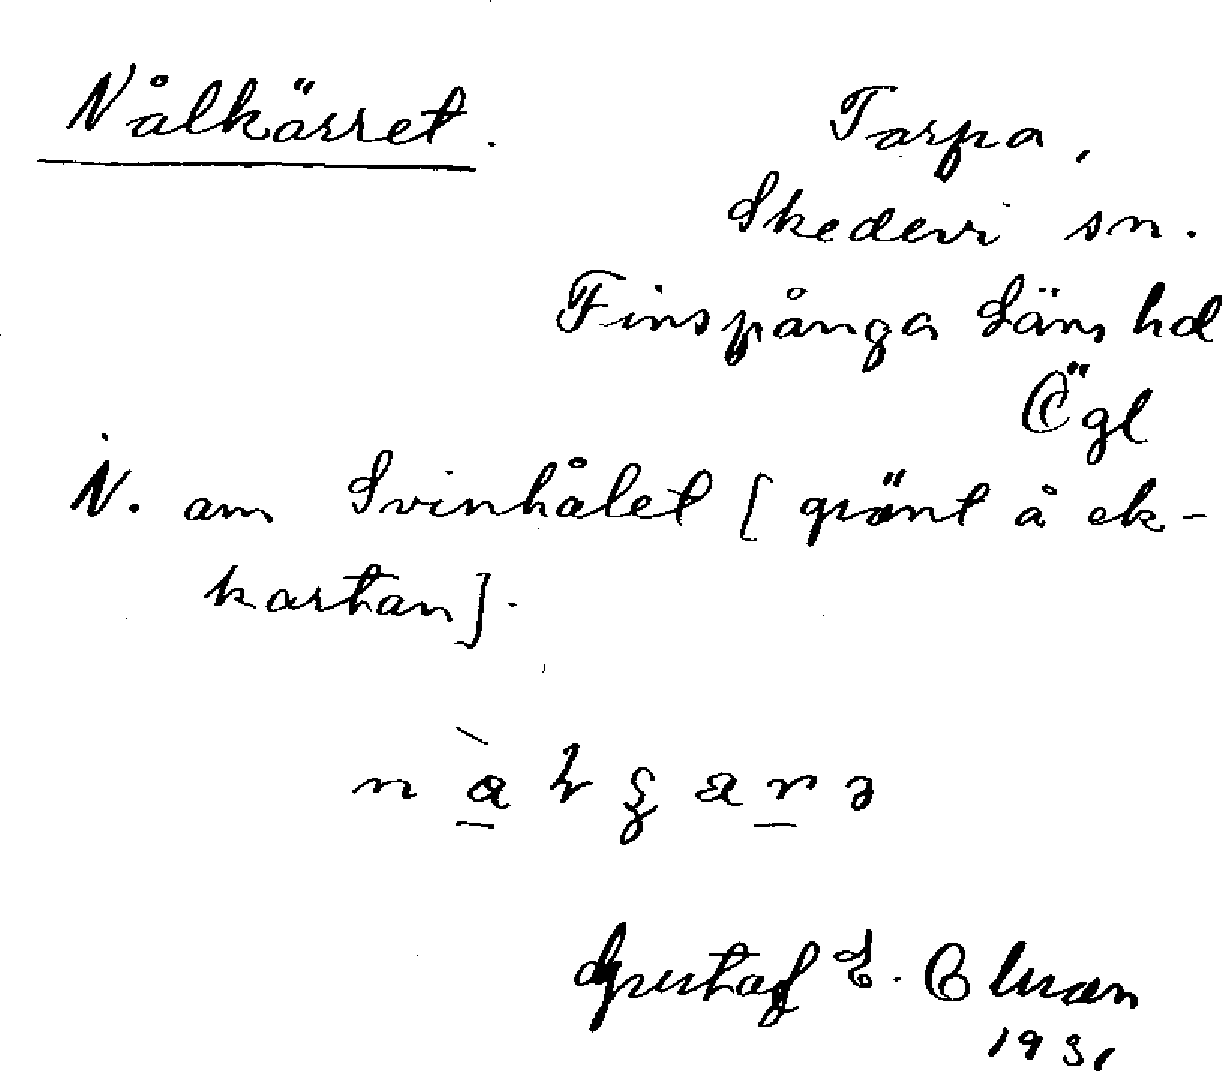 Nålkärret.
Tarpa,
Skedevi sn.
Finspånga läns hd
Ögl
N. om Svinhålet [grönt å ek-
kartan].
Gustaf E.
1931